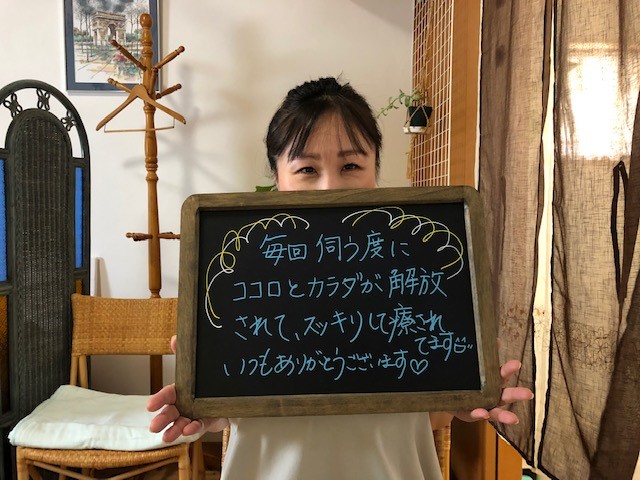 毎回伺う度に
ココロとカラダが解放
されて、スッキリして癒され
てます
いつもありがとうございます♡